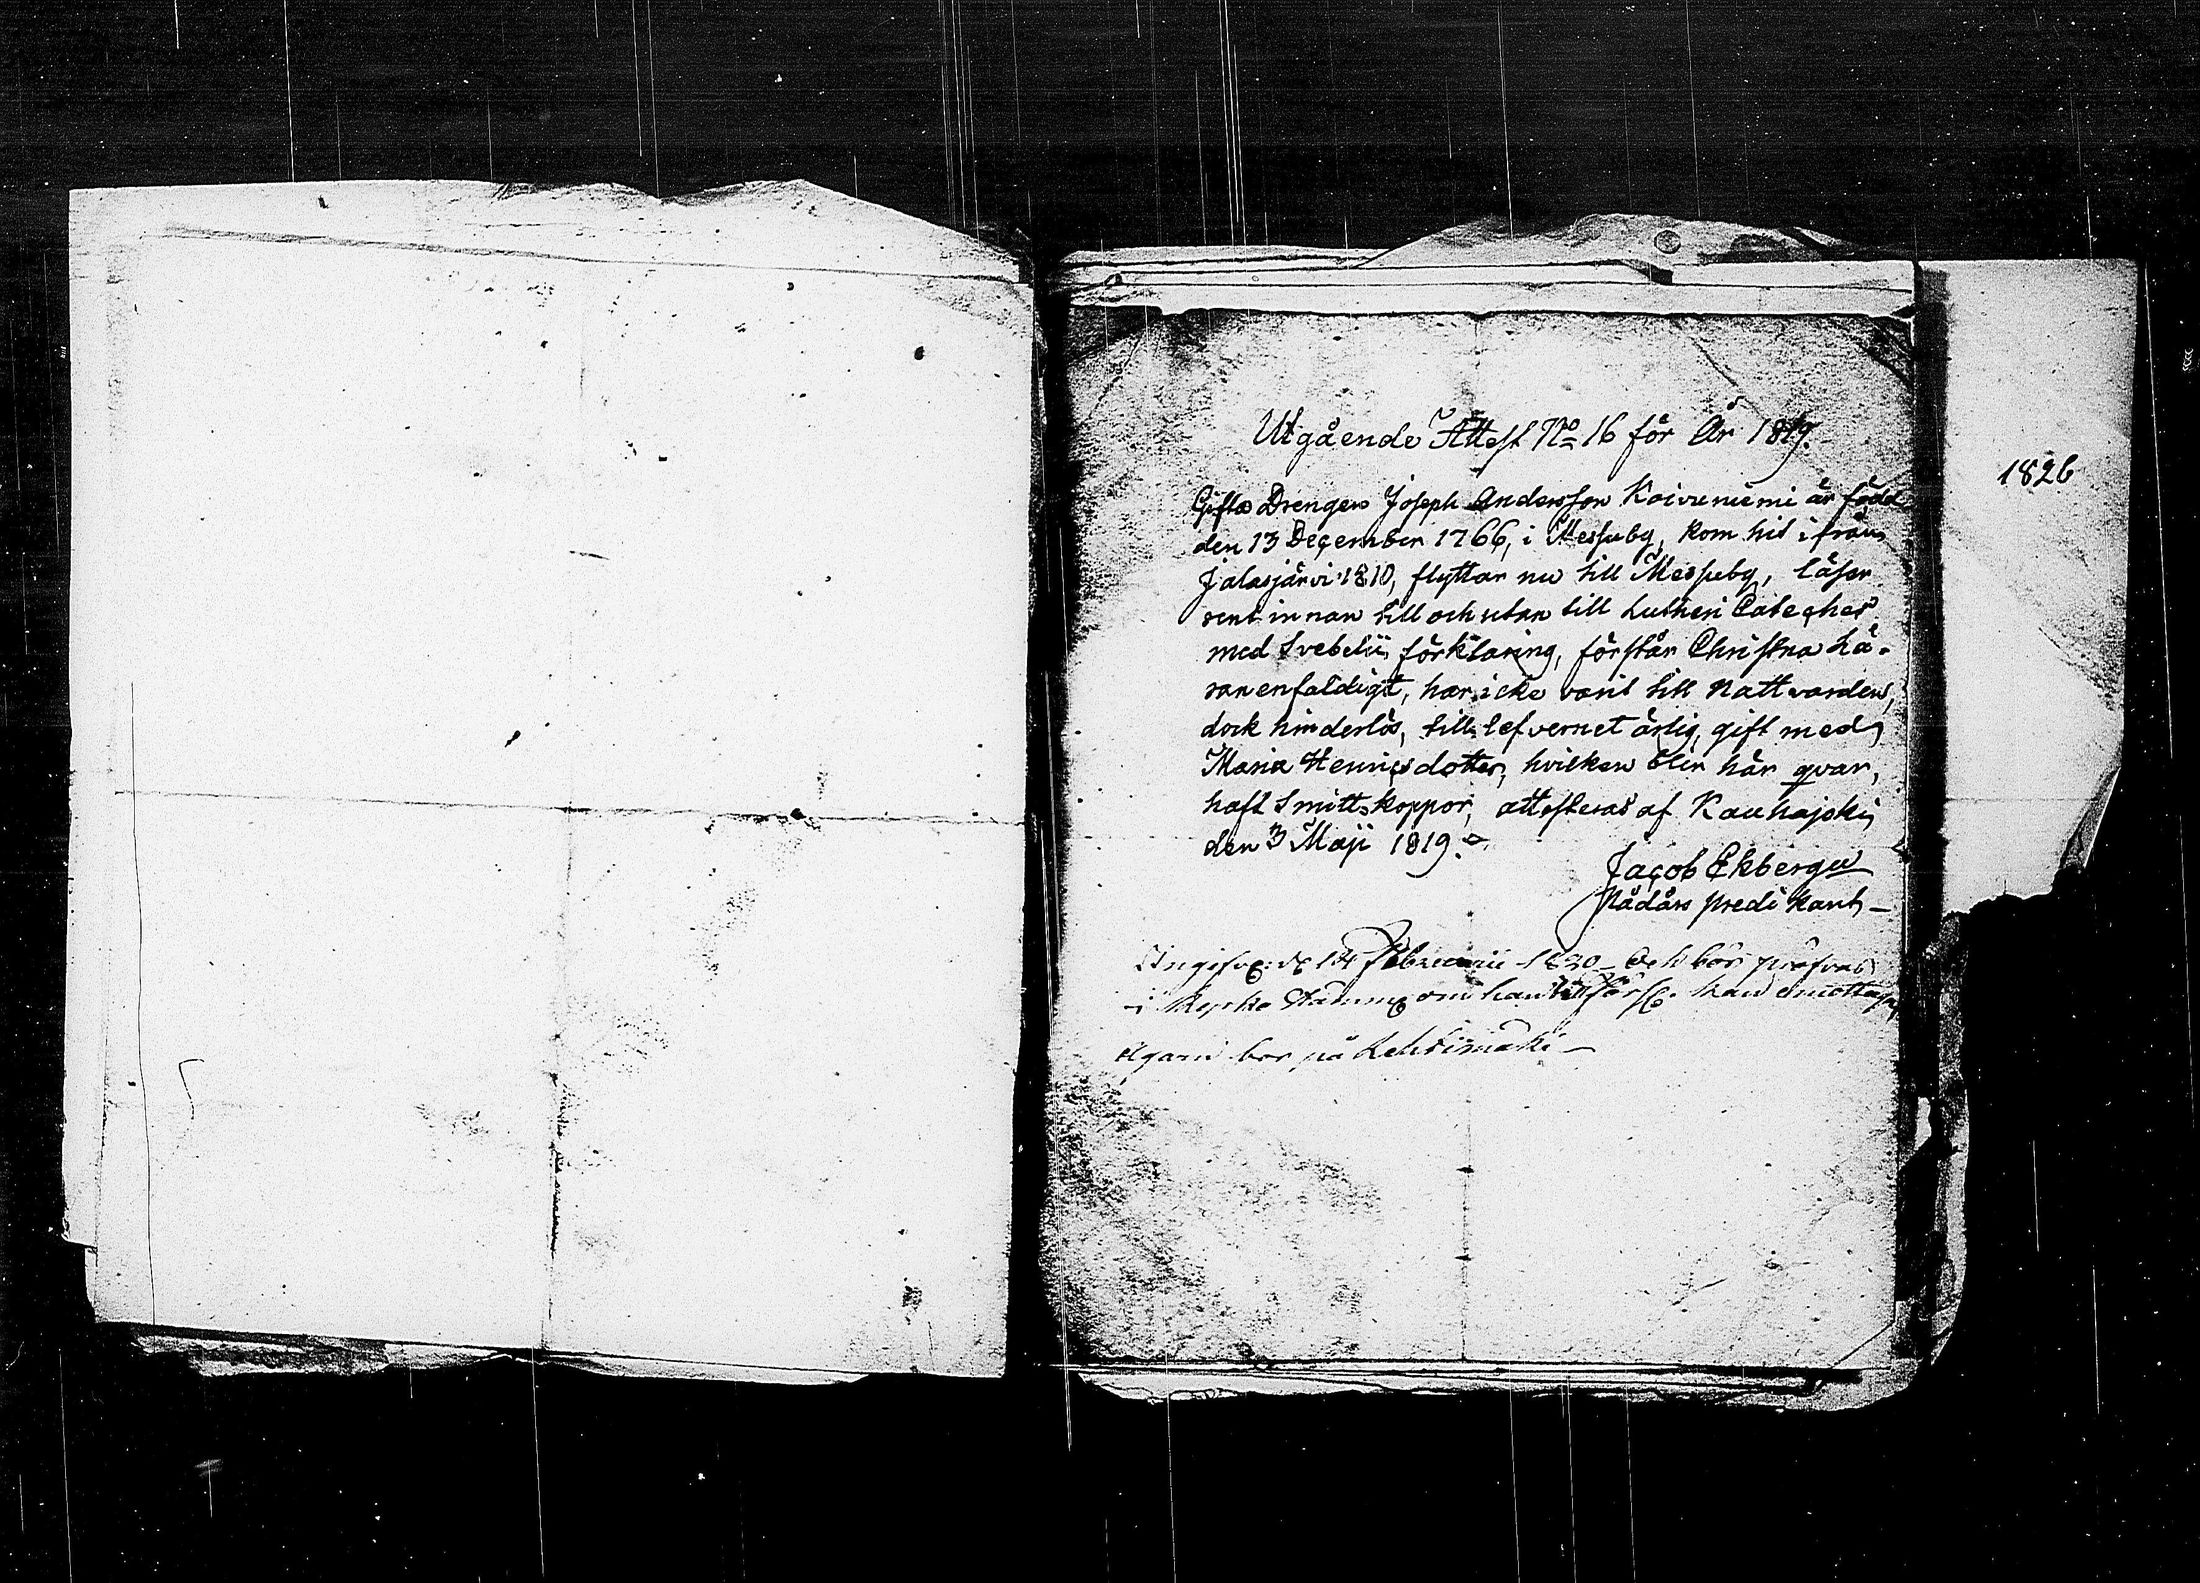 Utgående Attest No 16 för År 1819.
Gifta Drengen Joseph Andersson Koivuniemi är född
den 13 December 1766, i Messuby, kom hit ifrån
Jalasjärvi 1810, flyttar nu till Messuby, läser
rent innan till och utan till Lutheri Cateches
med Svebelii förklaring, förstår Christna Lä-
ran enfaldigt, har icke varit till Nattvarden,
dock hinderlös, till lefvernet ärlig, gift med
Maria Henricsdotter, hvilken blir här qvar,
haft Smittkoppor, attesteras af Kauhajoki
den 3 Maji 1819.
Jacob Ekberg
Nådårs predikant
Ingifven d. Februarii 1820 och bör pröfvas
i om han kan emottagas
bor på Lehtimäki
1826